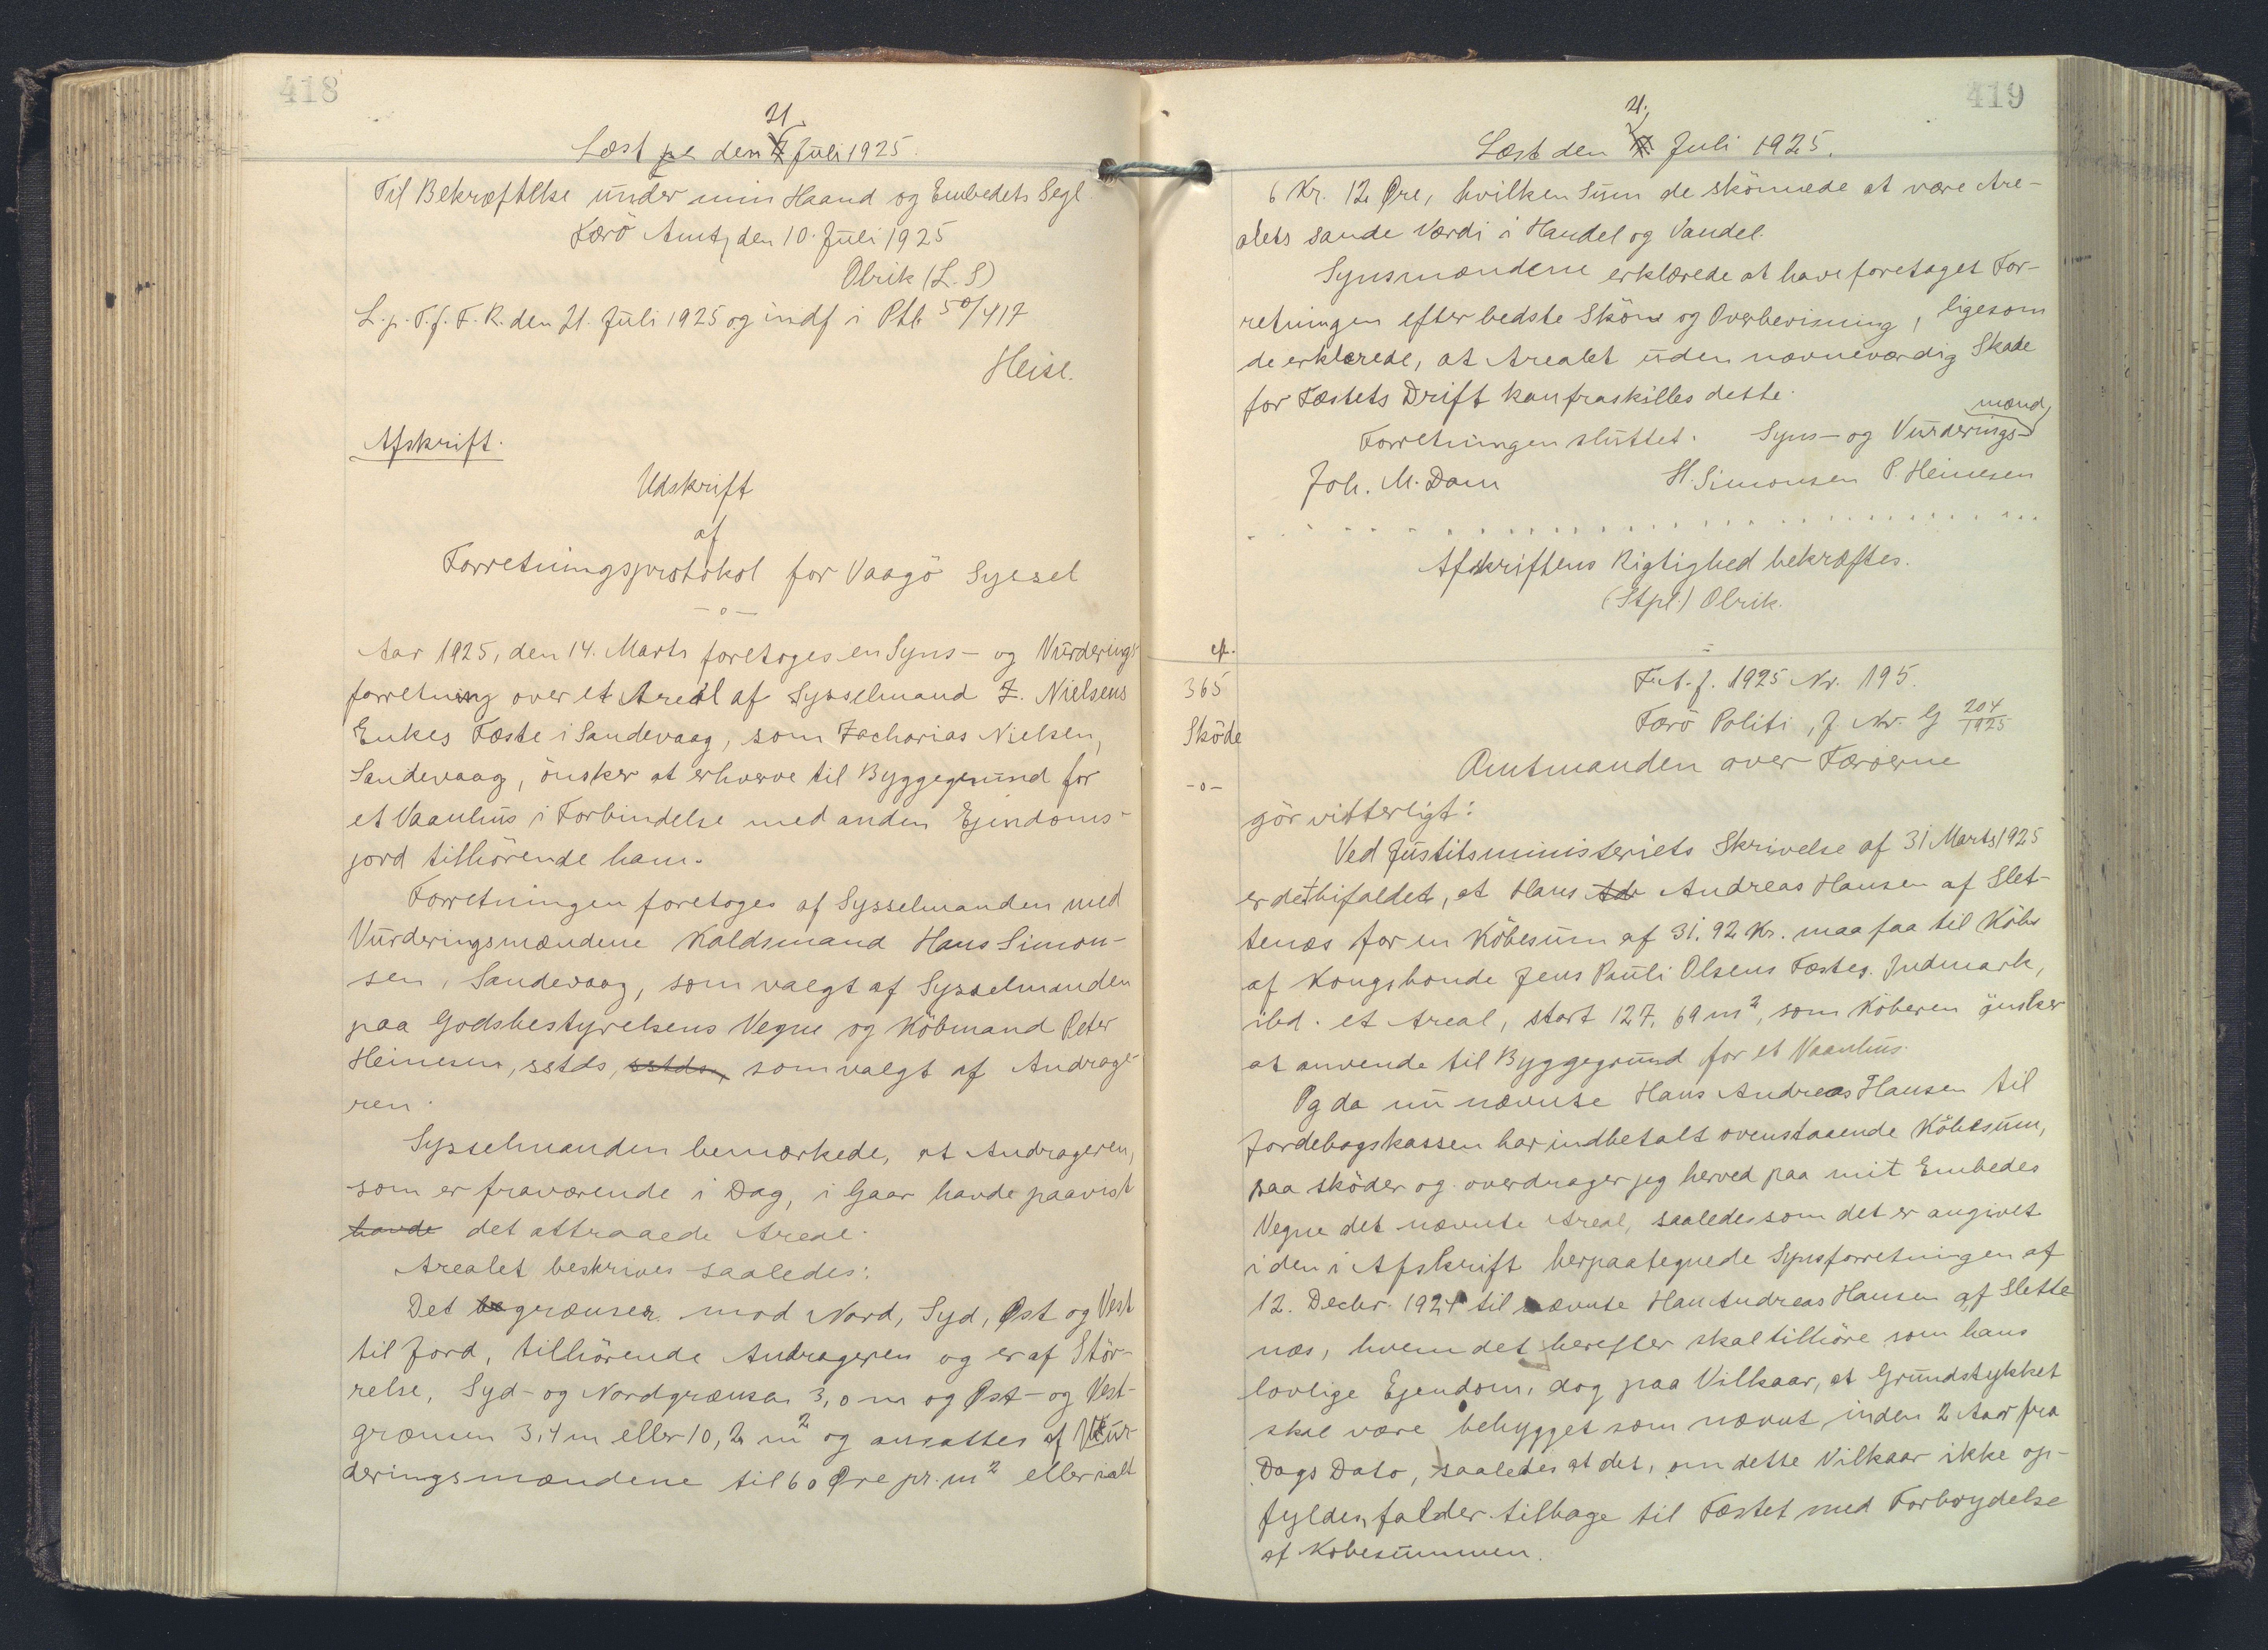 418
21.
Læst den Juli 1925.
Til Bekræftelse under min Haand og Embedets Segl.
Færö Amt, den 10. Juli 1925
Olrik (L. S)
L. p. T. f. F. R. den 21. Juli 1925 og indf i Ptb. 50/417
Heise.
Afskrift.
Udskrift
af
Forretningsprotokol for Vaagö Syssel
-o-
Aar 1925, den 14. Marts foretoges en Syns- og Vurderings
forretning over et Areal af Sysselmand Z. Nielsens
Enkes Fæste i Sandevaag, som Zacharias Nielsen,
Sandevaag, önsker at erhverve til Byggegrund for
et Vaanhus i Forbindelse med anden Ejendoms-
jord tilhörende ham.
Forretningen foretoges af Sysselmanden med
Vurderingsmændene Kaldsmand Hans Simon-
sen, Sandevaag, som valgt af Sysselmanden
paa Godsbestyrelsens Vegne og Köbmand Peter
Heinesen, sstds, sstds, som valgt af Andrage-
ren.
Sysselmanden bemærkede, at Andrageren,
som er fraværende i Dag, i Gaar havde paavist
havde det attraaede Areal.
Arealet beskrives saaledes:
Det be grænser mod Nord, Syd, Øst og Vest
til Jord, tilhörende Andrageren og er af Stör-
relse, Syd- og Nordgrænsen 3,0 m og Øst- og Vest-
grænsen 3,4 m eller 10,2 m² og ansattes af Vur-
deringsmændene til 60 Øre pr. m² eller ialt
419
21.
Læst den Juli 1925.
6 Kr. 12 Øre, hvilken Sum de skönnede at være Are-
alets sande Værdi i Handel og Vandel.
Synsmændene erklærede at have foretaget For-
retningen efter bedste Skön og Overbevisning, ligesom
de erklærede, at Arealet uden nævneværdig Skade
for Fæstets Drift kan fraskilles dette.
mænd
Forretningen sluttet. Syns- og Vurderings-
Joh. M. Dam H. Simonsen P. Heinesen
Afskriftens Rigtighed bekræftes.
(Stpl.) Olrik.
365
Sköde
-o-
F. A. J. 1925 Nr. 195.
Færö Politi, J. Nr. G 204/1925
Amtmanden over Færöerne
gör vitterligt:
Ved Justitsministeriets Skrivelse af 31 Marts 1925
er det bifaldet, at Hans Adr Andreas Hansen af Slet-
tenæs for en Köbesum af 31,92 Kr. maa faa til Köbs
af Kongsbonde Jens Pauli Olsens Fæstes Indmark,
ibd. et Areal, stort 127,69 m², som Köberen önsker
at anvende til Byggegrund for et Vaanhus.
Og da nu nævnte Hans Andreas Hansen til
Jordebogskassen har indbetalt ovenstaaende Köbesum,
saa sköder og overdrager jeg herved paa mit Embedes
Vegne det nævnte Areal, saaledes som det er angivet
i den i Afskrift herpaategnede Synsforretningen af
12. Decbr. 1924 til nævnte Han Andreas Hansen af Slette
næs, hvem det herefter skal tilhöre som hans
lovlige Ejendom, dog paa Vilkaar, at Grundstykket
skal være bebygget som nævnt inden 2 Aar fra
Dags Dato, saaledes at det, om dette Vilkaar ikke op-
fyldes, falder tilbage til Fæstet med Forbrydelse
af Köbesummen.